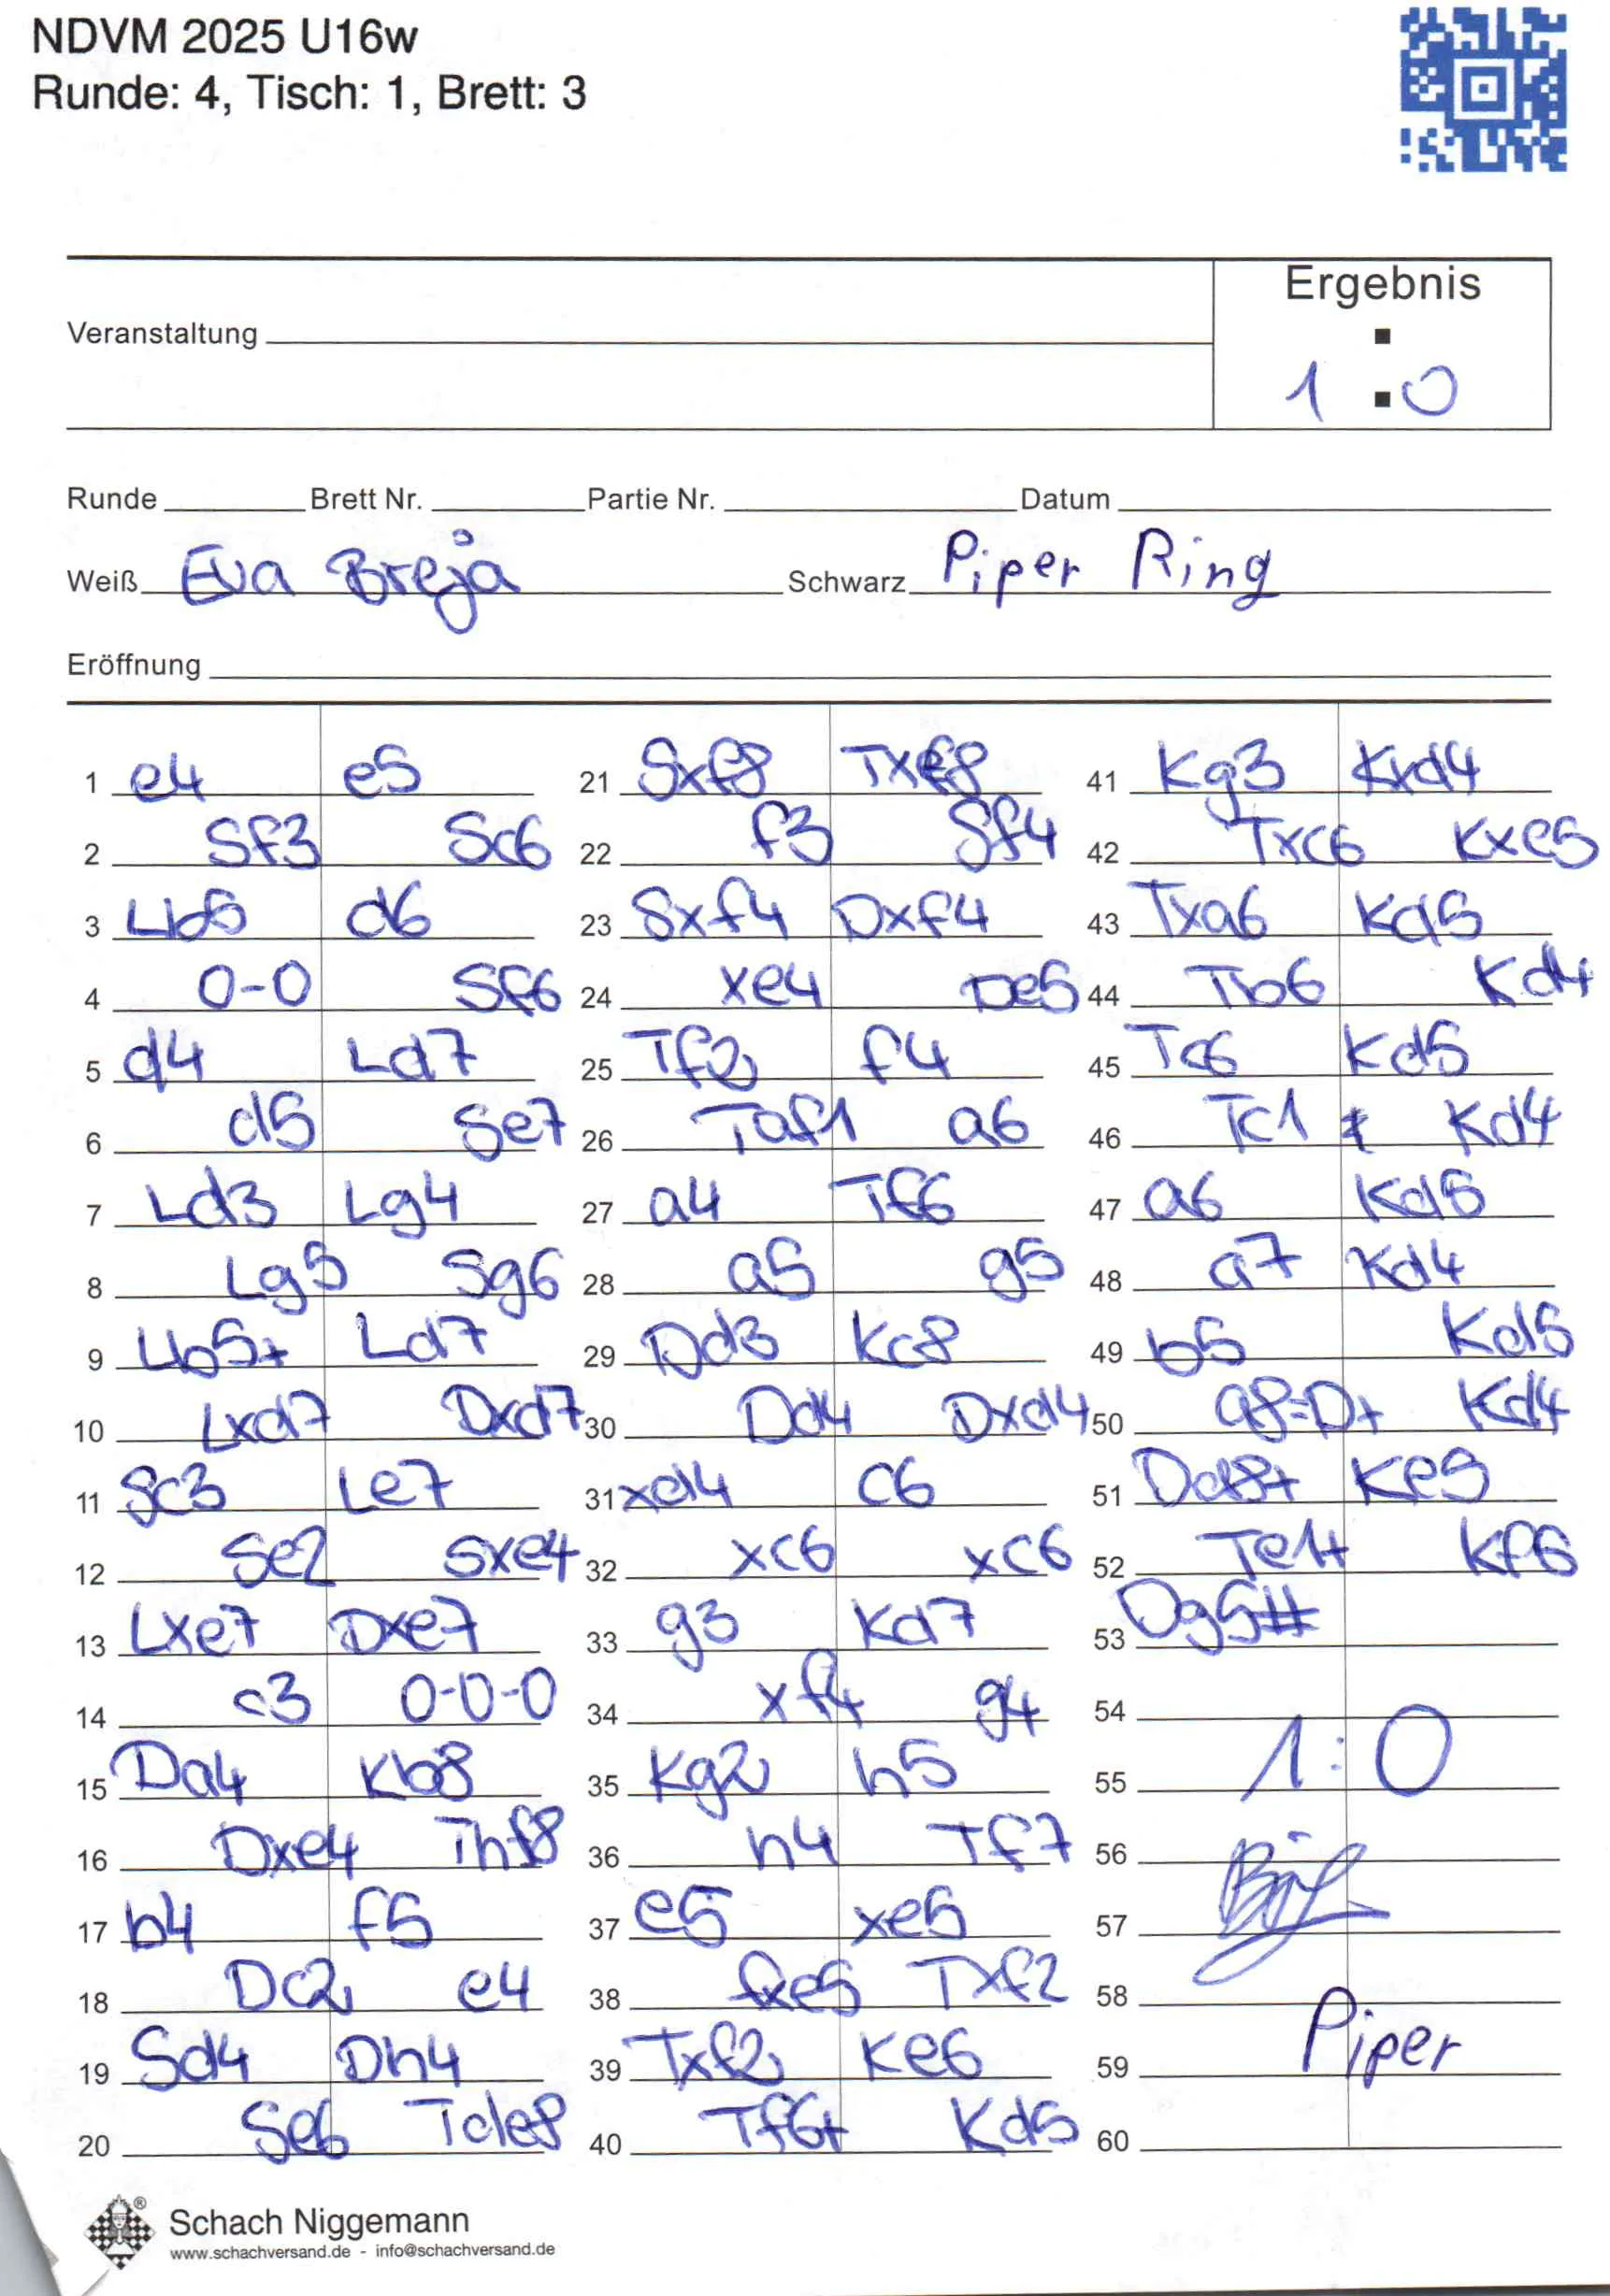 NDVM 2025 U16w
Runde: 4, Tisch: 1, Brett: 3
Ergebnis
:
Veranstaltung
1 : 0
Runde Brett Nr. Partie Nr. Datum
Weiß Eva Breja Schwarz Piper Ring
Eröffnung
1 e4 e5 21 Sxf8 Txf8 41 Kg3 Kxd4
2 Sf3 Sc6 22 f3 Sf4 42 Txc6 Kxe5
3 Lb5 d6 23 Sxf4 Dxf4 43 Txa6 Kd5
4 0-0 Sf6 24 xe4 De5 44 Tb6 Kd4
5 d4 Ld7 25 Tf2 f4 45 Tc6 Kd5
6 d5 Se7 26 Taf1 a6 46 Tc1 Kd4
7 Ld3 Lg4 27 a4 Tf6 47 a6 Kd5
8 Lg5 Sg6 28 a5 g5 48 a7 Kd4
9 Lb5+ Ld7 29 Dd3 Kc8 49 b5 Kd5
10 Lxd7 Dxd7 30 Dd4 Dxd4 50 a8=D+ Kd4
11 Sc3 Le7 31 xd4 c6 51 Dd8+ Ke5
12 Se2 Sxe4 32 xc6 xc6 52 Te1+ Kf6
13 Lxe7 Dxe7 33 g3 Kd7 53 Dg5#
14 c3 0-0-0 34 xf4 g4 54
15 Da4 Kb8 35 Kg2 h5 55 1:0
16 Dxe4 Thf8 36 h4 Tf7 56
17 b4 f5 37 e5 xe5 57
18 Dc2 e4 38 fxe5 Txf2 58
19 Sd4 Dh4 39 Txf2 Ke6 59 Piper
20 Se6 Tde8 40 Tf6+ Kd5 60
® Schach Niggemann
www.schachversand.de - info@schachversand.de